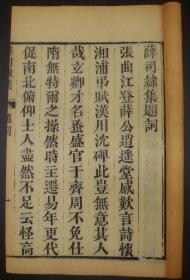 薛司隸集題詞
張曲江登薛公逍遙堂感歎言詩懷
湘浦弔賦漢川沈碑此豈無意其人
哉玄卿才名蚤盛宦于齊周不免仕
隋無特爾之操然時主遷易年更代
促南北俯仰士人盡然不足云怪高